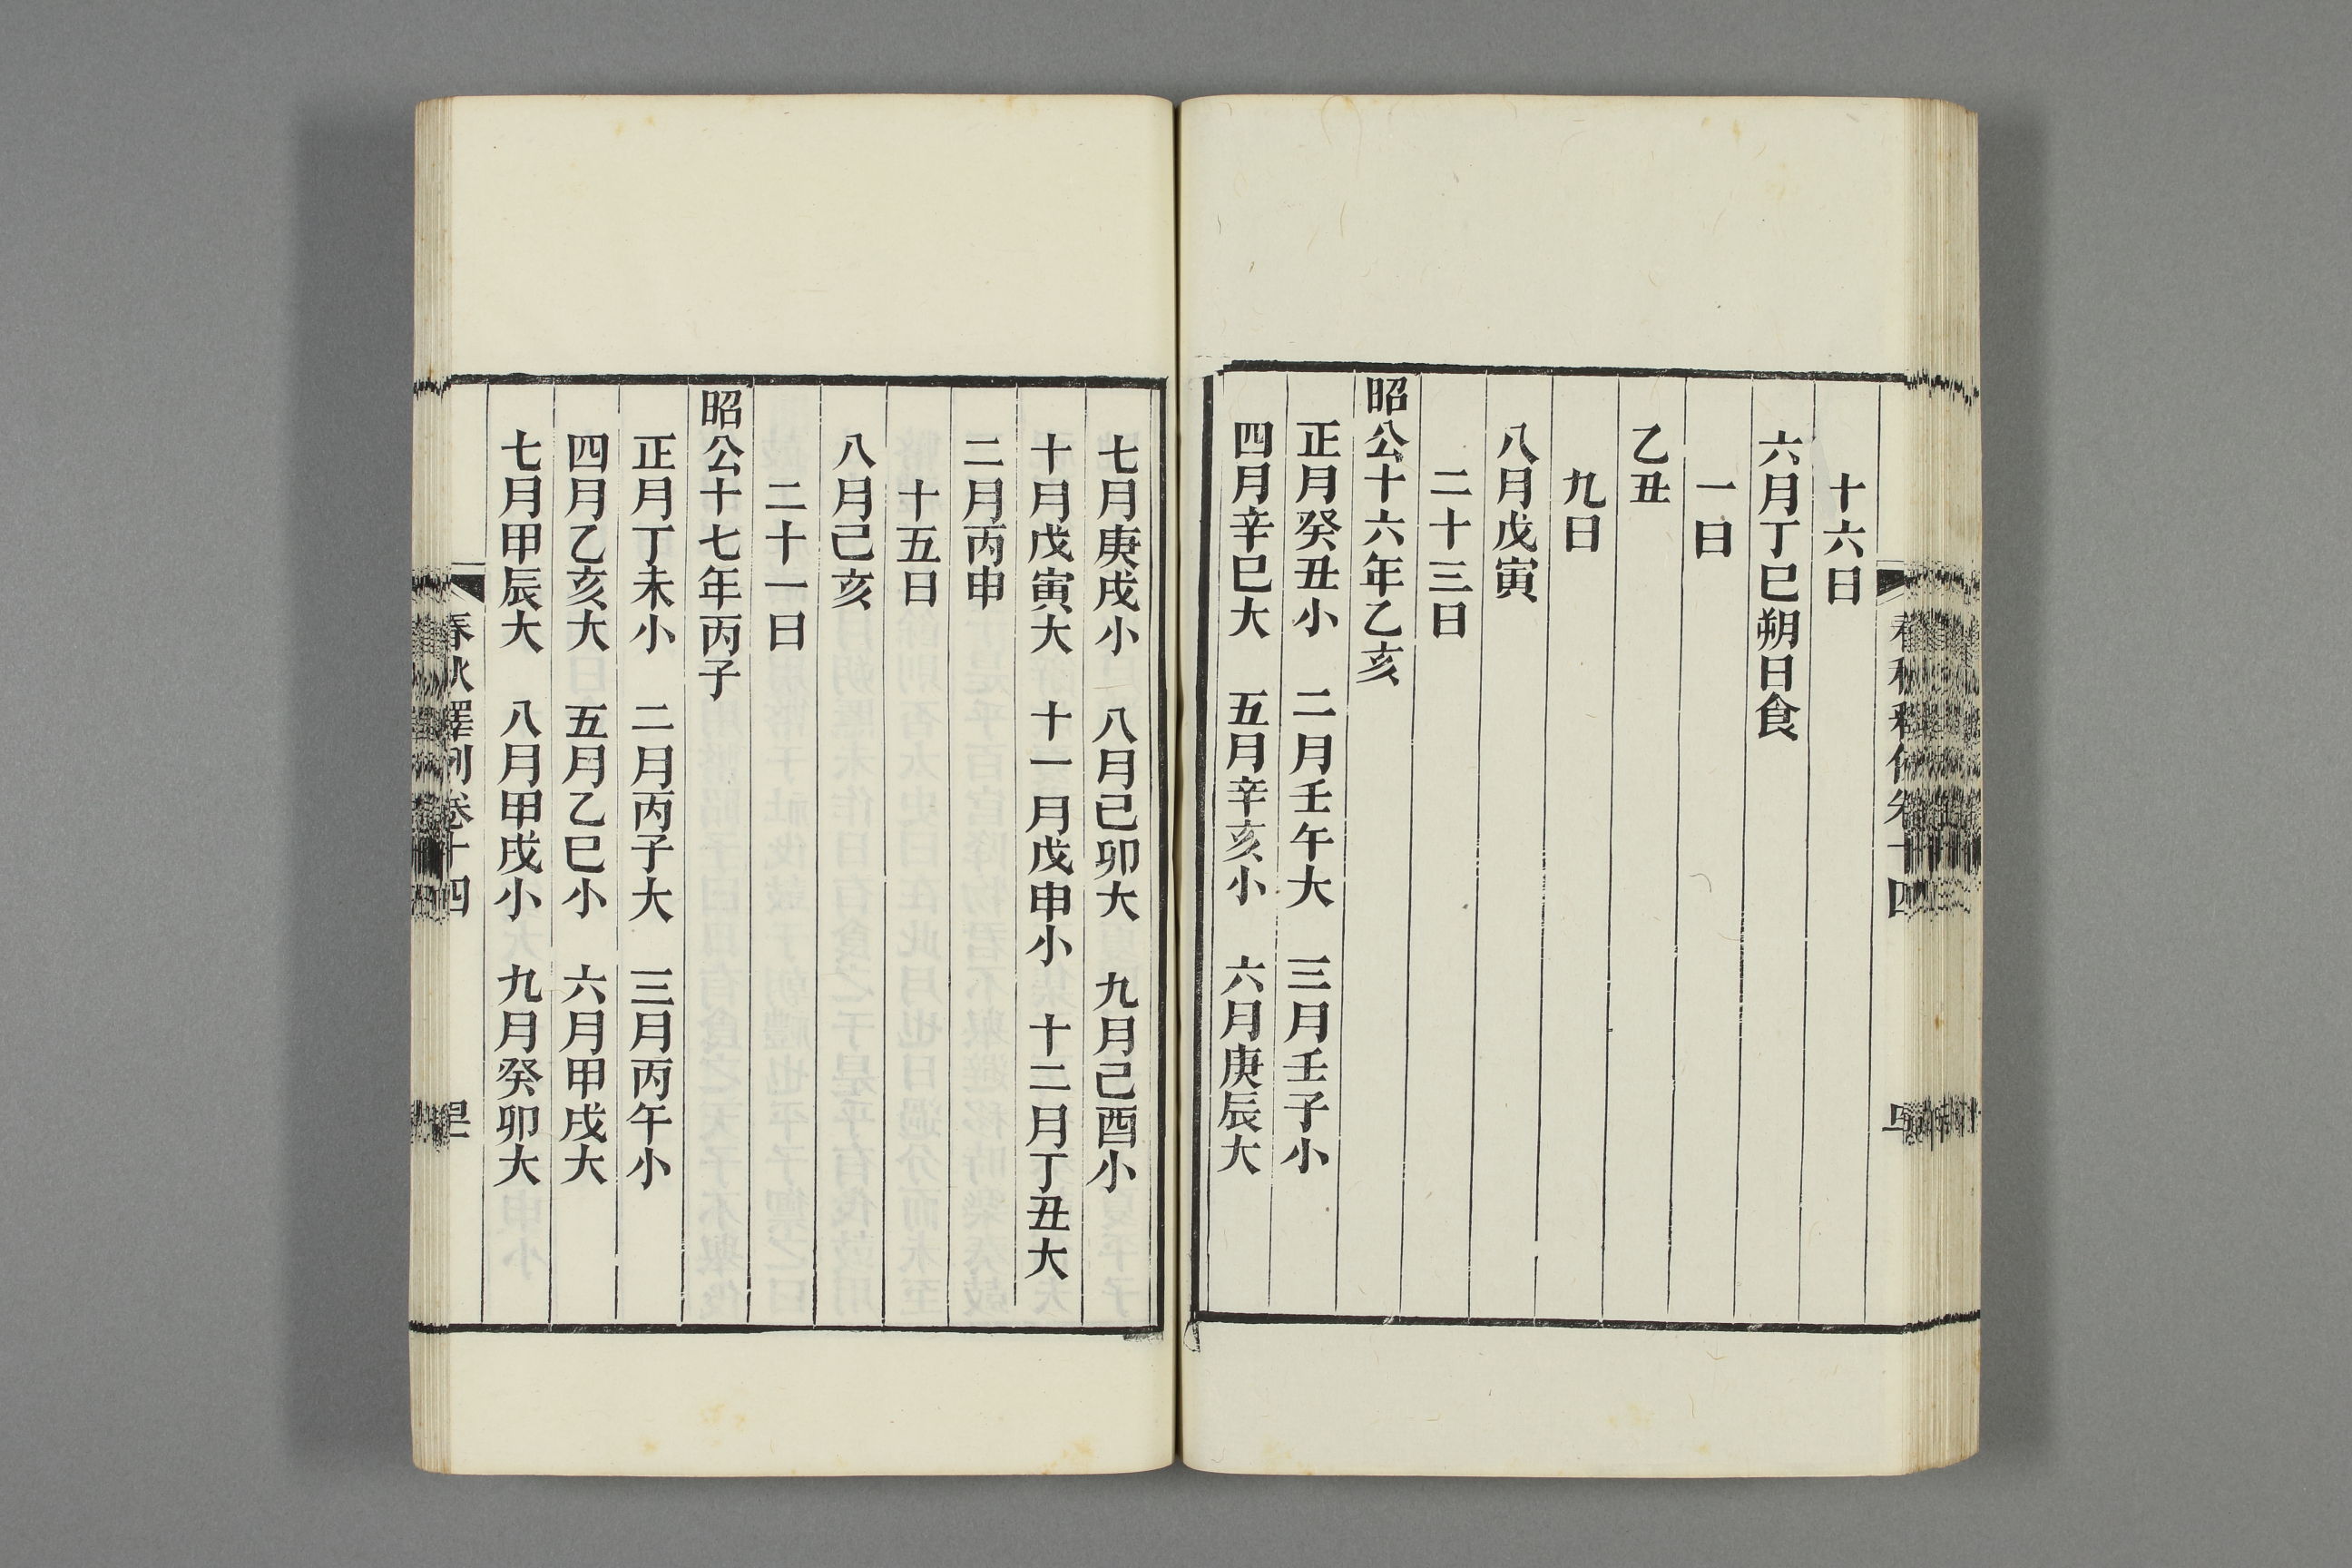 十六日
六月丁巳朔日食
一日
乙丑
九日
八月戊寅
二十三日
昭公十六年乙亥
正月癸丑小　二月壬午大　三月壬子小
四月辛巳大　五月辛亥小　六月庚辰大
七月庚戌小　八月己卯大　九月己酉小
十月戊寅大　十一月戊申小　十二月丁丑大
二月丙申
十五日
八月己亥
二十一日
昭公十七年丙子
正月丁未小　二月丙子大　三月丙午小
四月乙亥大　五月乙巳小　六月甲戌大
七月甲辰大　八月甲戌小　九月癸卯大
春秋釋例卷十四